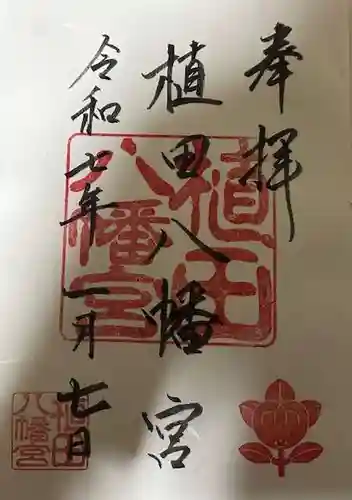 奉拝
植田八幡宮
令和七年一月七日
植田
八幡宮
植田
八幡宮